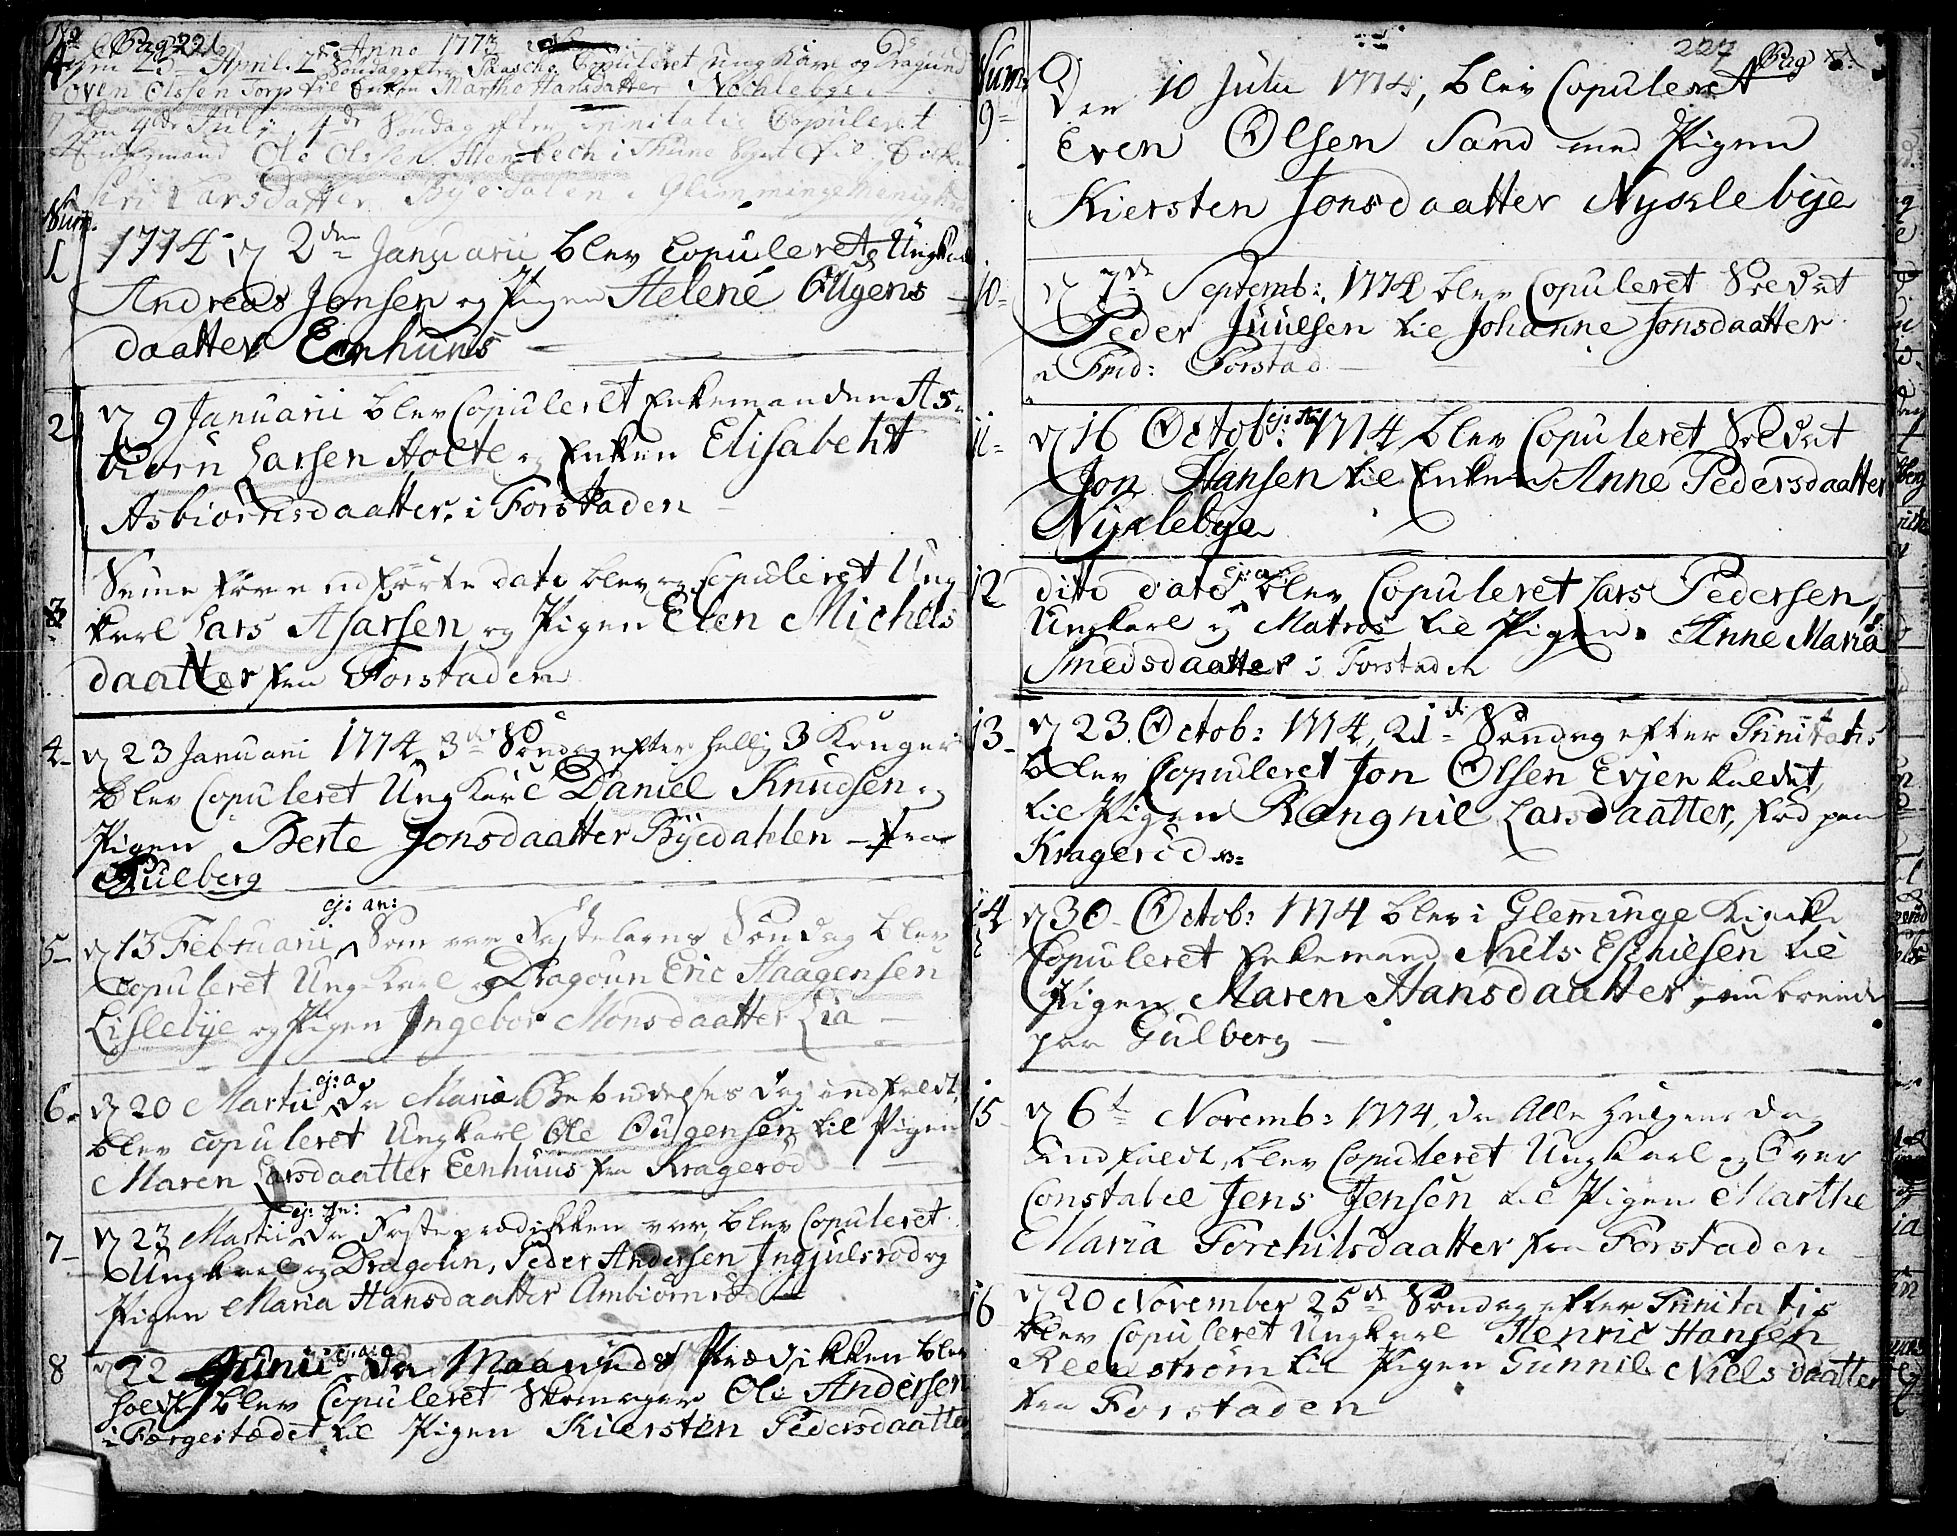 No Pag 226 Anno 1773
6 den 25 April. 2de Søndag efter Paasche Copuleret Ung Karl og Dragund
Even Olssen Torp til Marthe Hansdatter Nøchlebye
7 den 4de Julii, 4de Søndag efter Trinitatis Copuleret
Ole Olssen Stenbech i Thune Sogn til
Siri Larsdatter Byedalen i Glimminge Menighed
Num.
1 1774 d 2den Januarii blev Copuleret Ungkarl
Andreas Jonsen og Pigen Helene Ougens
daatter Eenhuus
2 d 9 Januarii blev Copuleret Enkemanden As-
biørn Larsen Holte og Enken Elisabeht
Asbiørnsdaatter i Forstaden
Seine for indførte dato blev og Copuleret Ung
3 karl Lars Asarsen og Pigen Elen Michels
daatter fra Forstaden
4 d 23 Januari 1774, 3de Søndag efter hellig 3 Konger
blev Copuleret Ung Karl Daniel Knudsen og
Pigen Berte Jonsdaatter Byedahlen fra
Gulberg
ej: an:
5 d 13 Februarii, Som var Fastelavns Søndag blev
Copuleret Ungkarl og Dragoun Eric Haagensen
Lislebye og Pigen Ingebor Monsdaatter Lia
ej: a
6 d 20 Martii Da Mariæ Bebudelses Dag indfaldt,
blev copuleret Ungkarl Ole Ougensen til Pigen
Maren Larsdaatter Eenhuus fra Kragerød
ej: an:
7 d 23 Martii Da Fasteprædikken var, blev Copuleret
Ungkarl og Dragoun, Peder Andersen Ingjulsrød og
Pigen Maria Hansdaatter Ambiørnrød
8 d 22 Junii Da Maaneds Prædikken blev
holdt, blev Copuleret Skomager Ole Andersen
i Færgestædet til Pigen Kiersten Pedersdaatter
227 Pag
Num:
9 Den 10 Julii 1774, blev Copuleret
Even Olsen Sand med Pigen
Kiersten Jonsdaatter Nyklebye
10 d 7de Septemb: 1774 blev Copuleret Soldat
Peder Juulsen til Johanne Jonsdaatter
Frid: Forstad
11 d 16 Octob: 1774, blev Copuleret Soldat
Jon Hansen til Enken Anne Pedersdaatter
Nyklebye
12 dito dato, blev Copuleret Lars Pedersen,
Ungkarl og Matros til Pigen Anne Maria
Smedsdaatter i Forstaden
13 d 23 Octob: 1774, 21de Søndag efter Trinitatis
blev Copuleret Jon Olssen Evjen kaldet,
til Pigen Rangnil Larsdaatter, fød paa
Kragerød
14 d 30 Octob: 1774 blev i Gleminge Kirke
Copuleret Enkemand Niels Eschilsen til
Pigen Maren Hansdaatter, nu boende
paa Gulberg
15 d 6t Novemb: 1774, da Alle Helgens Dag
indfaldt, blev Copuleret Ungkarl og Over
Constabel Jens Jensen til Pigen Marthe
Maria Torchilsdaatter fra Forstaden
16 d 20 November 25de Søndag efter Trinitatis
blev Copuleret Ungkarl Henric Hansen
Reenstrøm til Pigen Gunnil Nielsdaatter
fra Forstaden